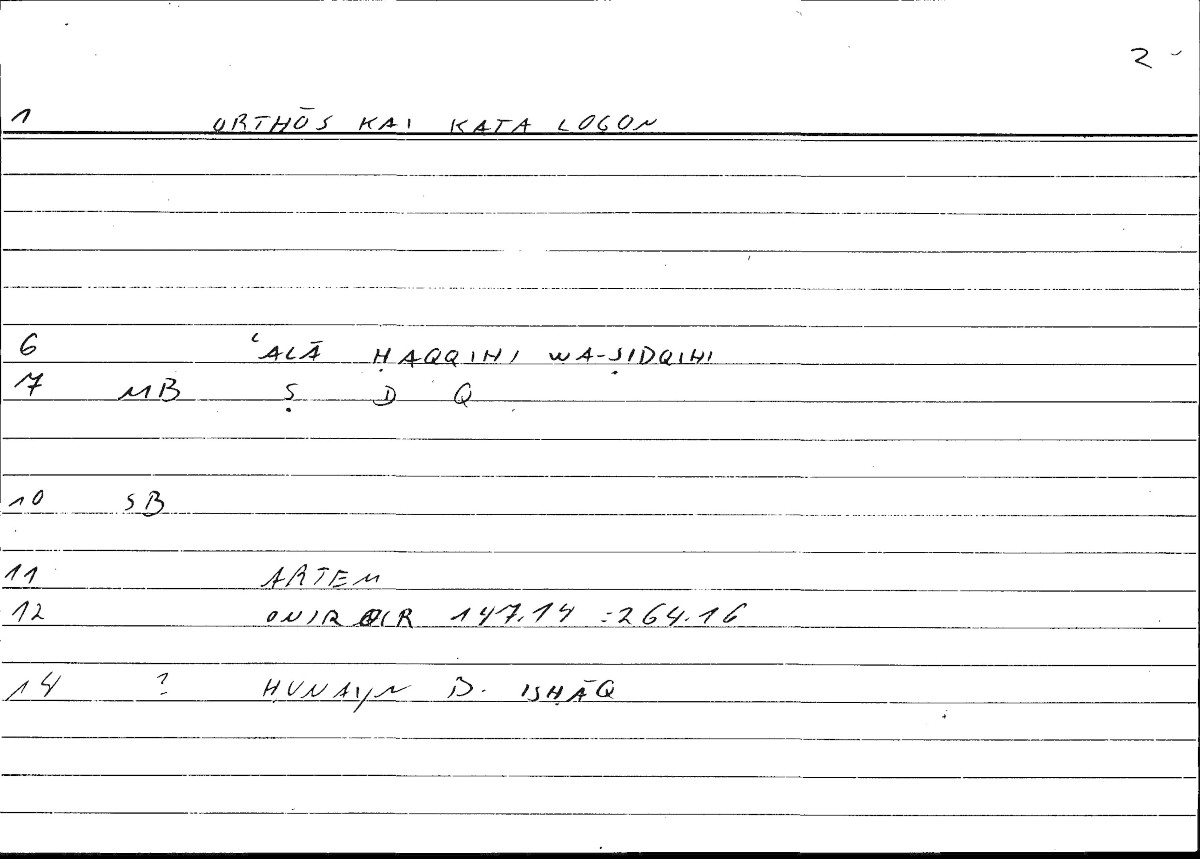 2
1 ORTHŌS KAI KATA LOGON
6 ʿALĀ ḤAQQIHI WA-ṢIDQIHI
7 MB Ṣ D Q
10 SB
11 ARTEM
12 ONIR 147.14 = 264.16
14 ? ḤUNAYN B. ISḤĀQ